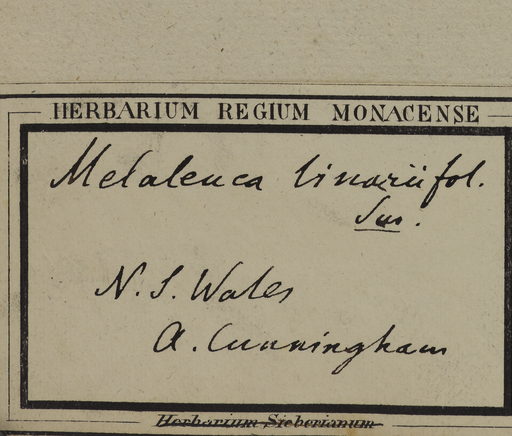 HERBARIUM REGIUM MONACENSE
Melaleuca linariifol.
Sm.
N. S. Wales
A. Cunningham
Herbarium Sieberianum